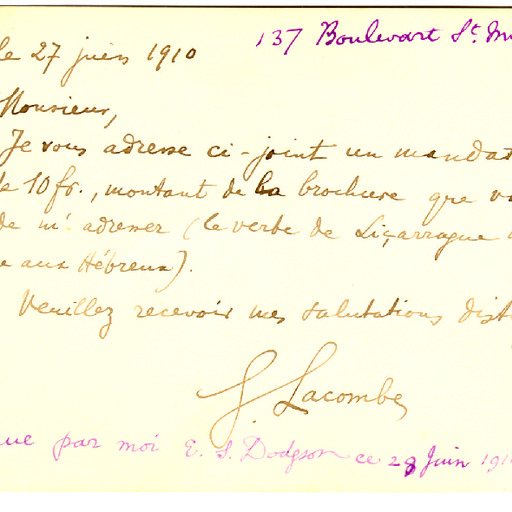 le 27 juin 1910
137 Boulevart St. M
Monsieur,
Je vous adresse ci-joint un mandat
de 10 fr., montant de la brochure que v
de m' adresser (le verbe de Liçarrague
e aux Hébreux).
Veuillez recevoir mes salutations dist
G. Lacombe
ue par moi E. S. Dodgson ce 28 Juin 191